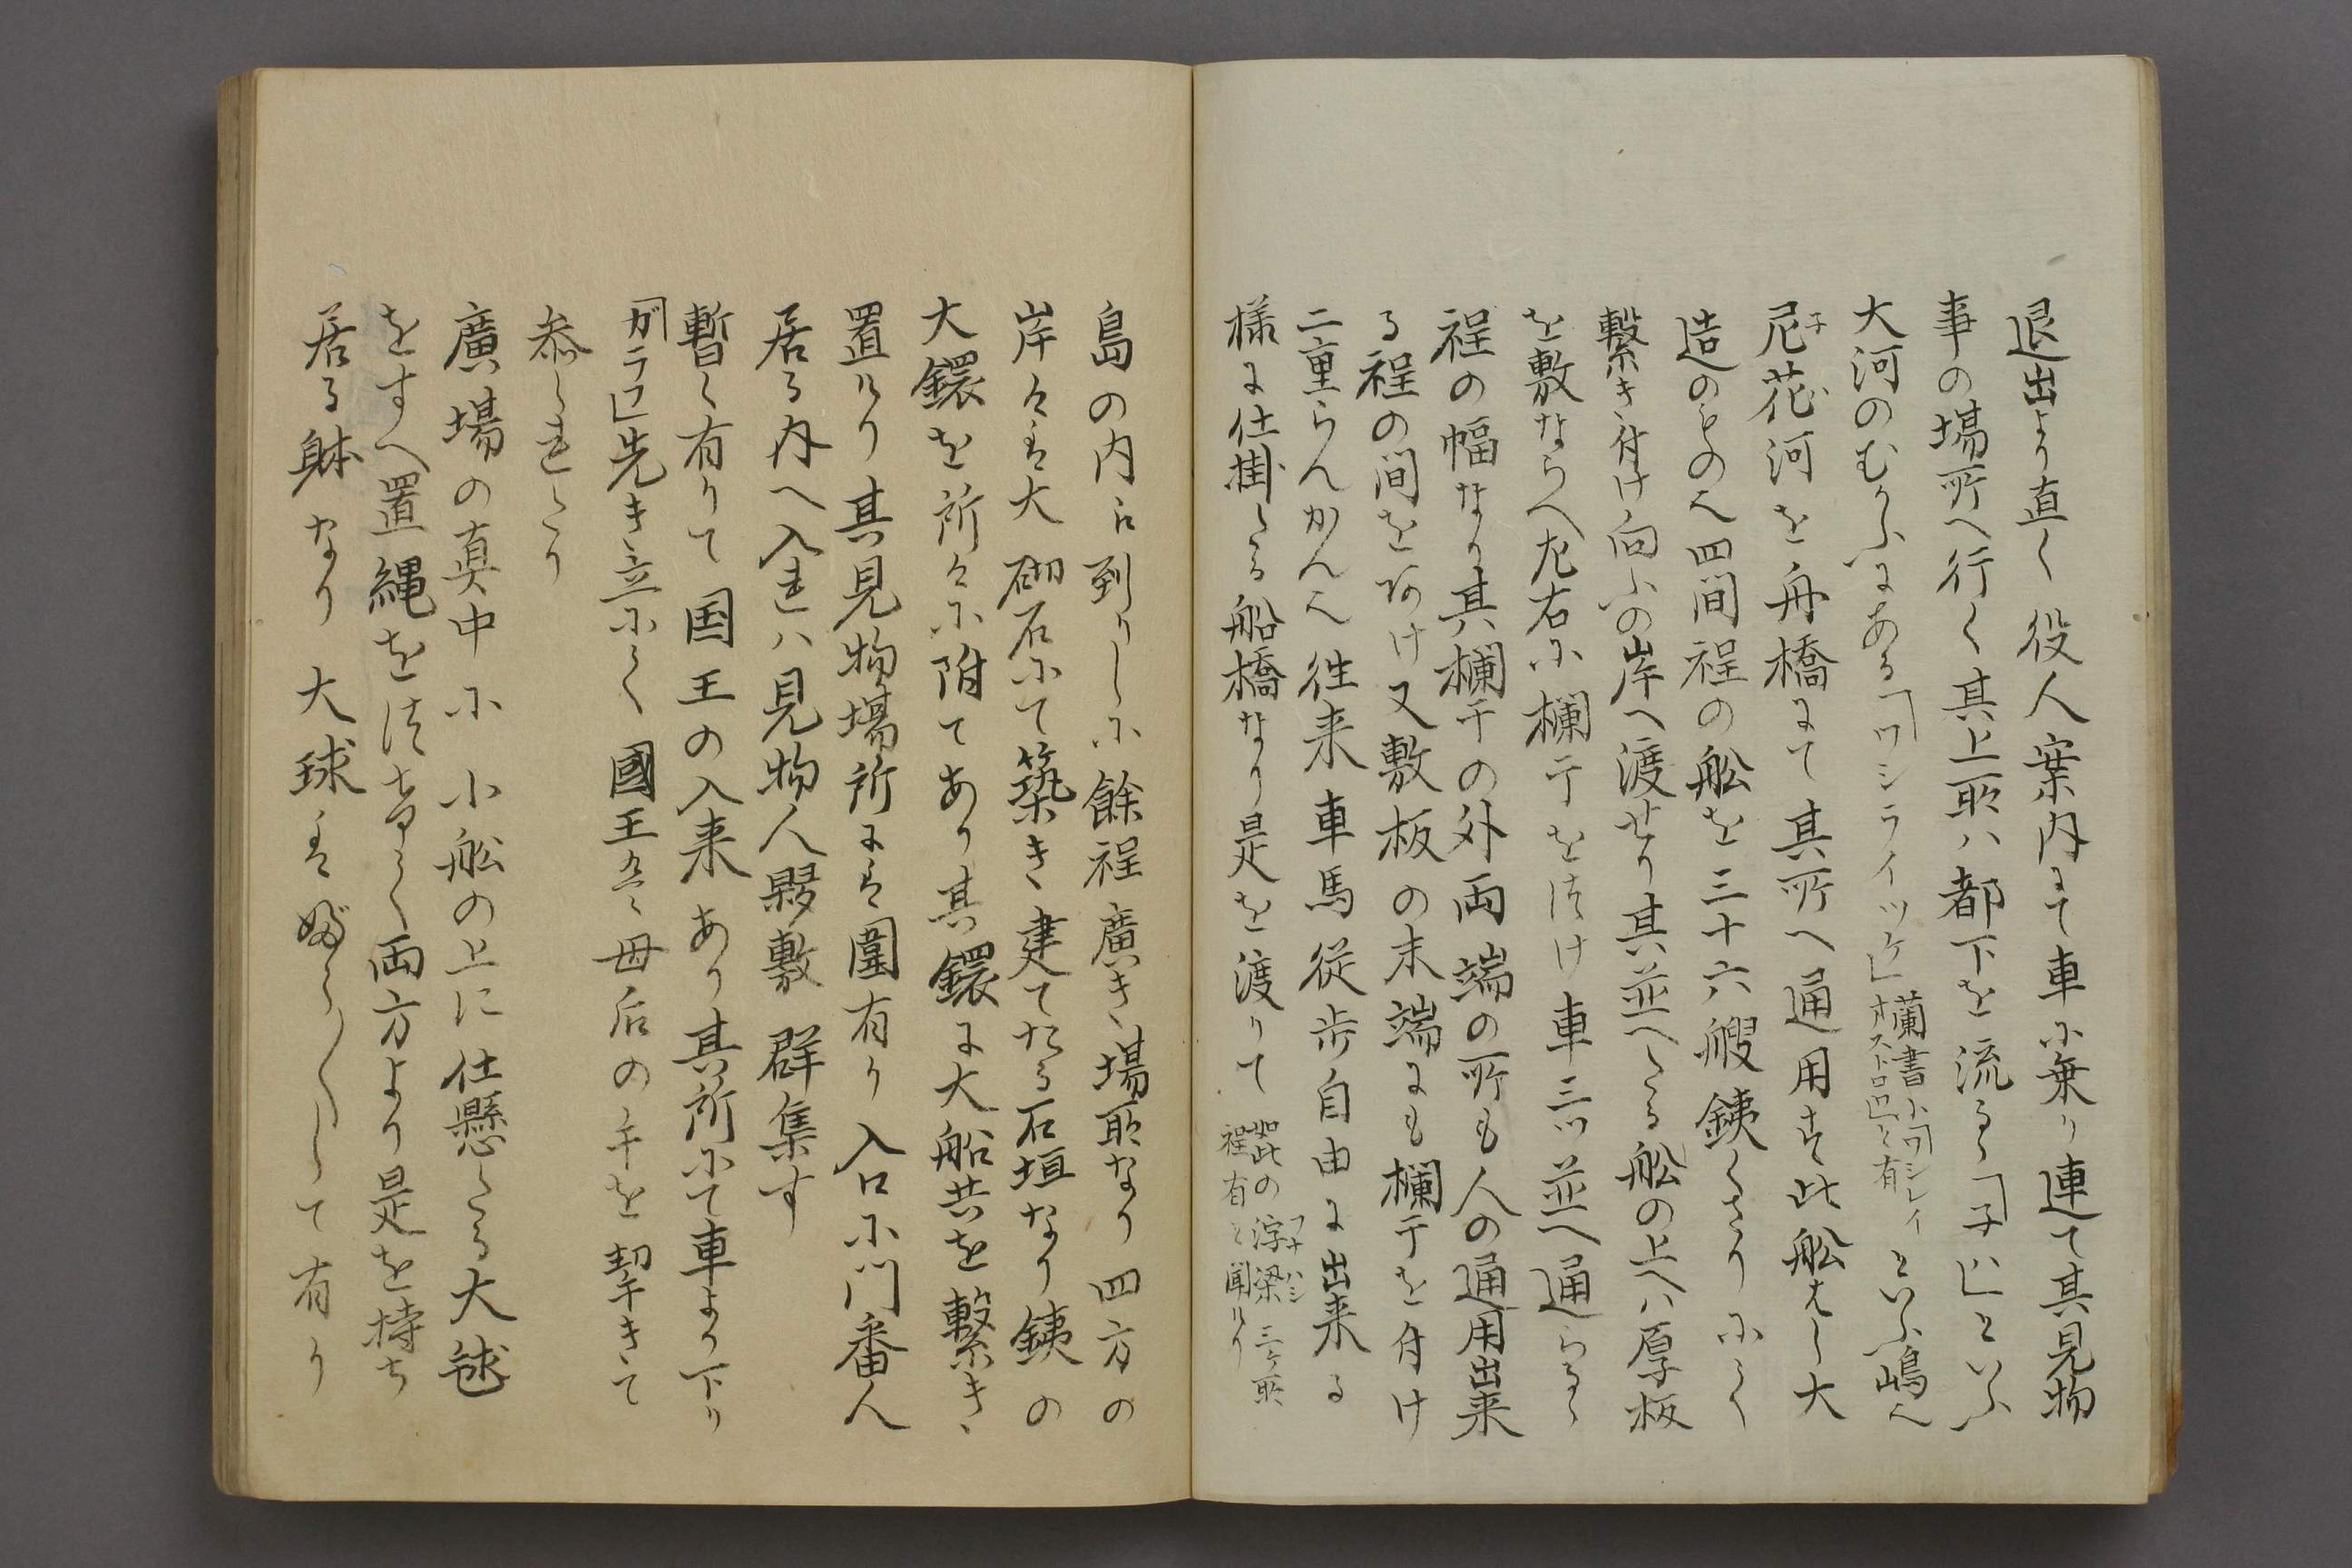 退出より直く役人案内にて車に乗り連て其見物
事の場所へ行く其上所ハ都下を流るゝ「子ハ」といふ
大河のむかふにある「ワシライツケ」蘭書に「ワシレイ
オストロロ」と有といふ嶋へ
尼花河を舟橋にて其所へ通用す此舩はし大
造のものへ四間程の舩を三十六艘銕くさりにく
繋き付け向ふの岸へ渡せり其並へたる舩の上へハ厚板
を敷ならへ左右に欄干を付け車三ツ並へ通らるゝ
程の幅なり其欄干の外両端の所も人の通用出来
る程の間をあけ又敷板の末端にも欄干を付け
二重らんかんへ往来車馬従歩自由に出来る
様に仕掛たる船橋なり是を渡りて如此の浮梁三ケ所
程有と聞けり
島の内に到りしに餘程廣き場所なり四方の
岸々は大砌石にて築き建てたる石垣なり銕の
大鐶を所々に附てあり其鐶に大船共を繋き
置けり其見物場所には圍有り入口に門番人
居る内へ入れハ見物人夥敷群集す
暫く有りて国王の入来あり其所にて車より下り
「ガラフ」先き立にく國王は母后の手を挈きて
参られたり
廣場の真中に小舩の上に仕懸たる大毬
をすへ置縄を付けく両方より是を持ち
居る躰なり大球は婦ら〳〵して有り